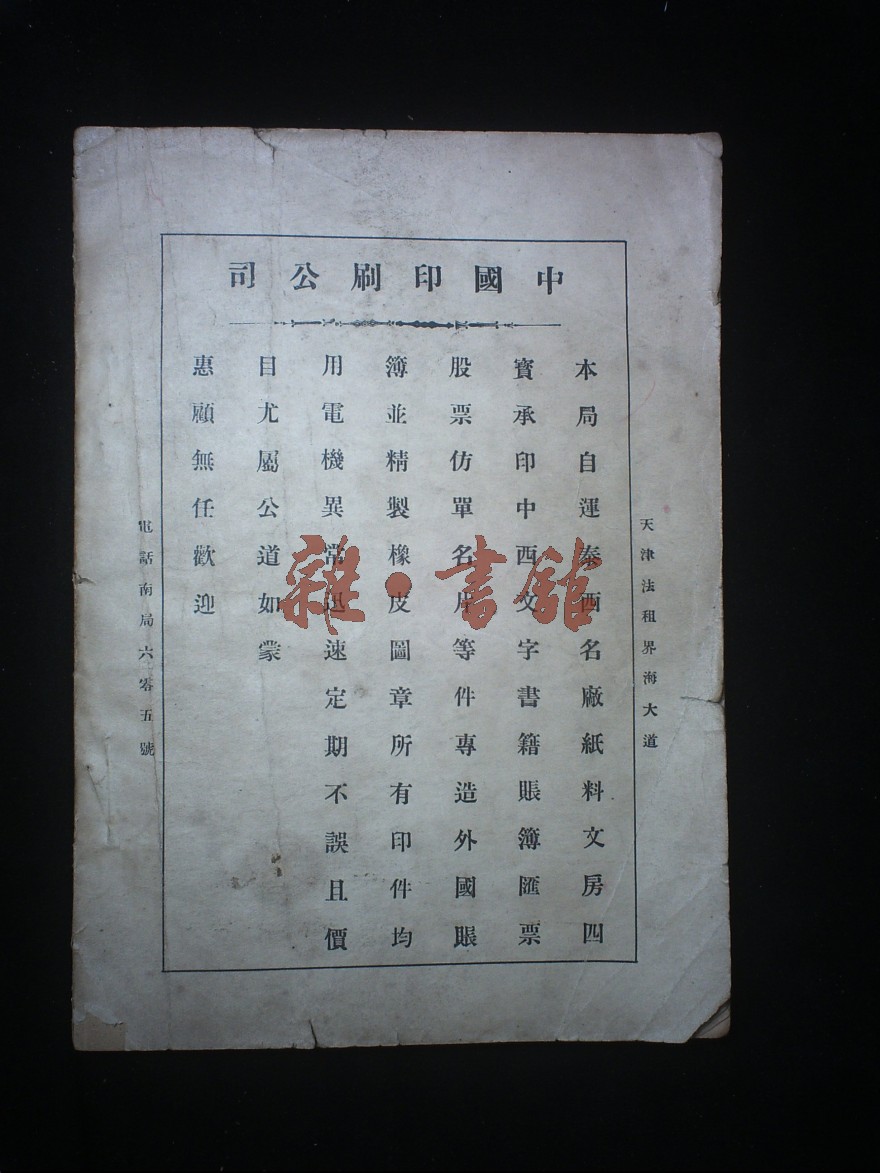 中國印刷公司
天津法租界海大道
本局自運泰西名廠紙料文房四
寳承印中西文字書籍賬簿匯票
股票仿單名片等件專造外國賬
簿並精製橡皮圖章所有印件均
用電機異常迅速定期不誤且價
目尤屬公道如蒙
惠顧無任歡迎
電話南局六零五號
雜·書館